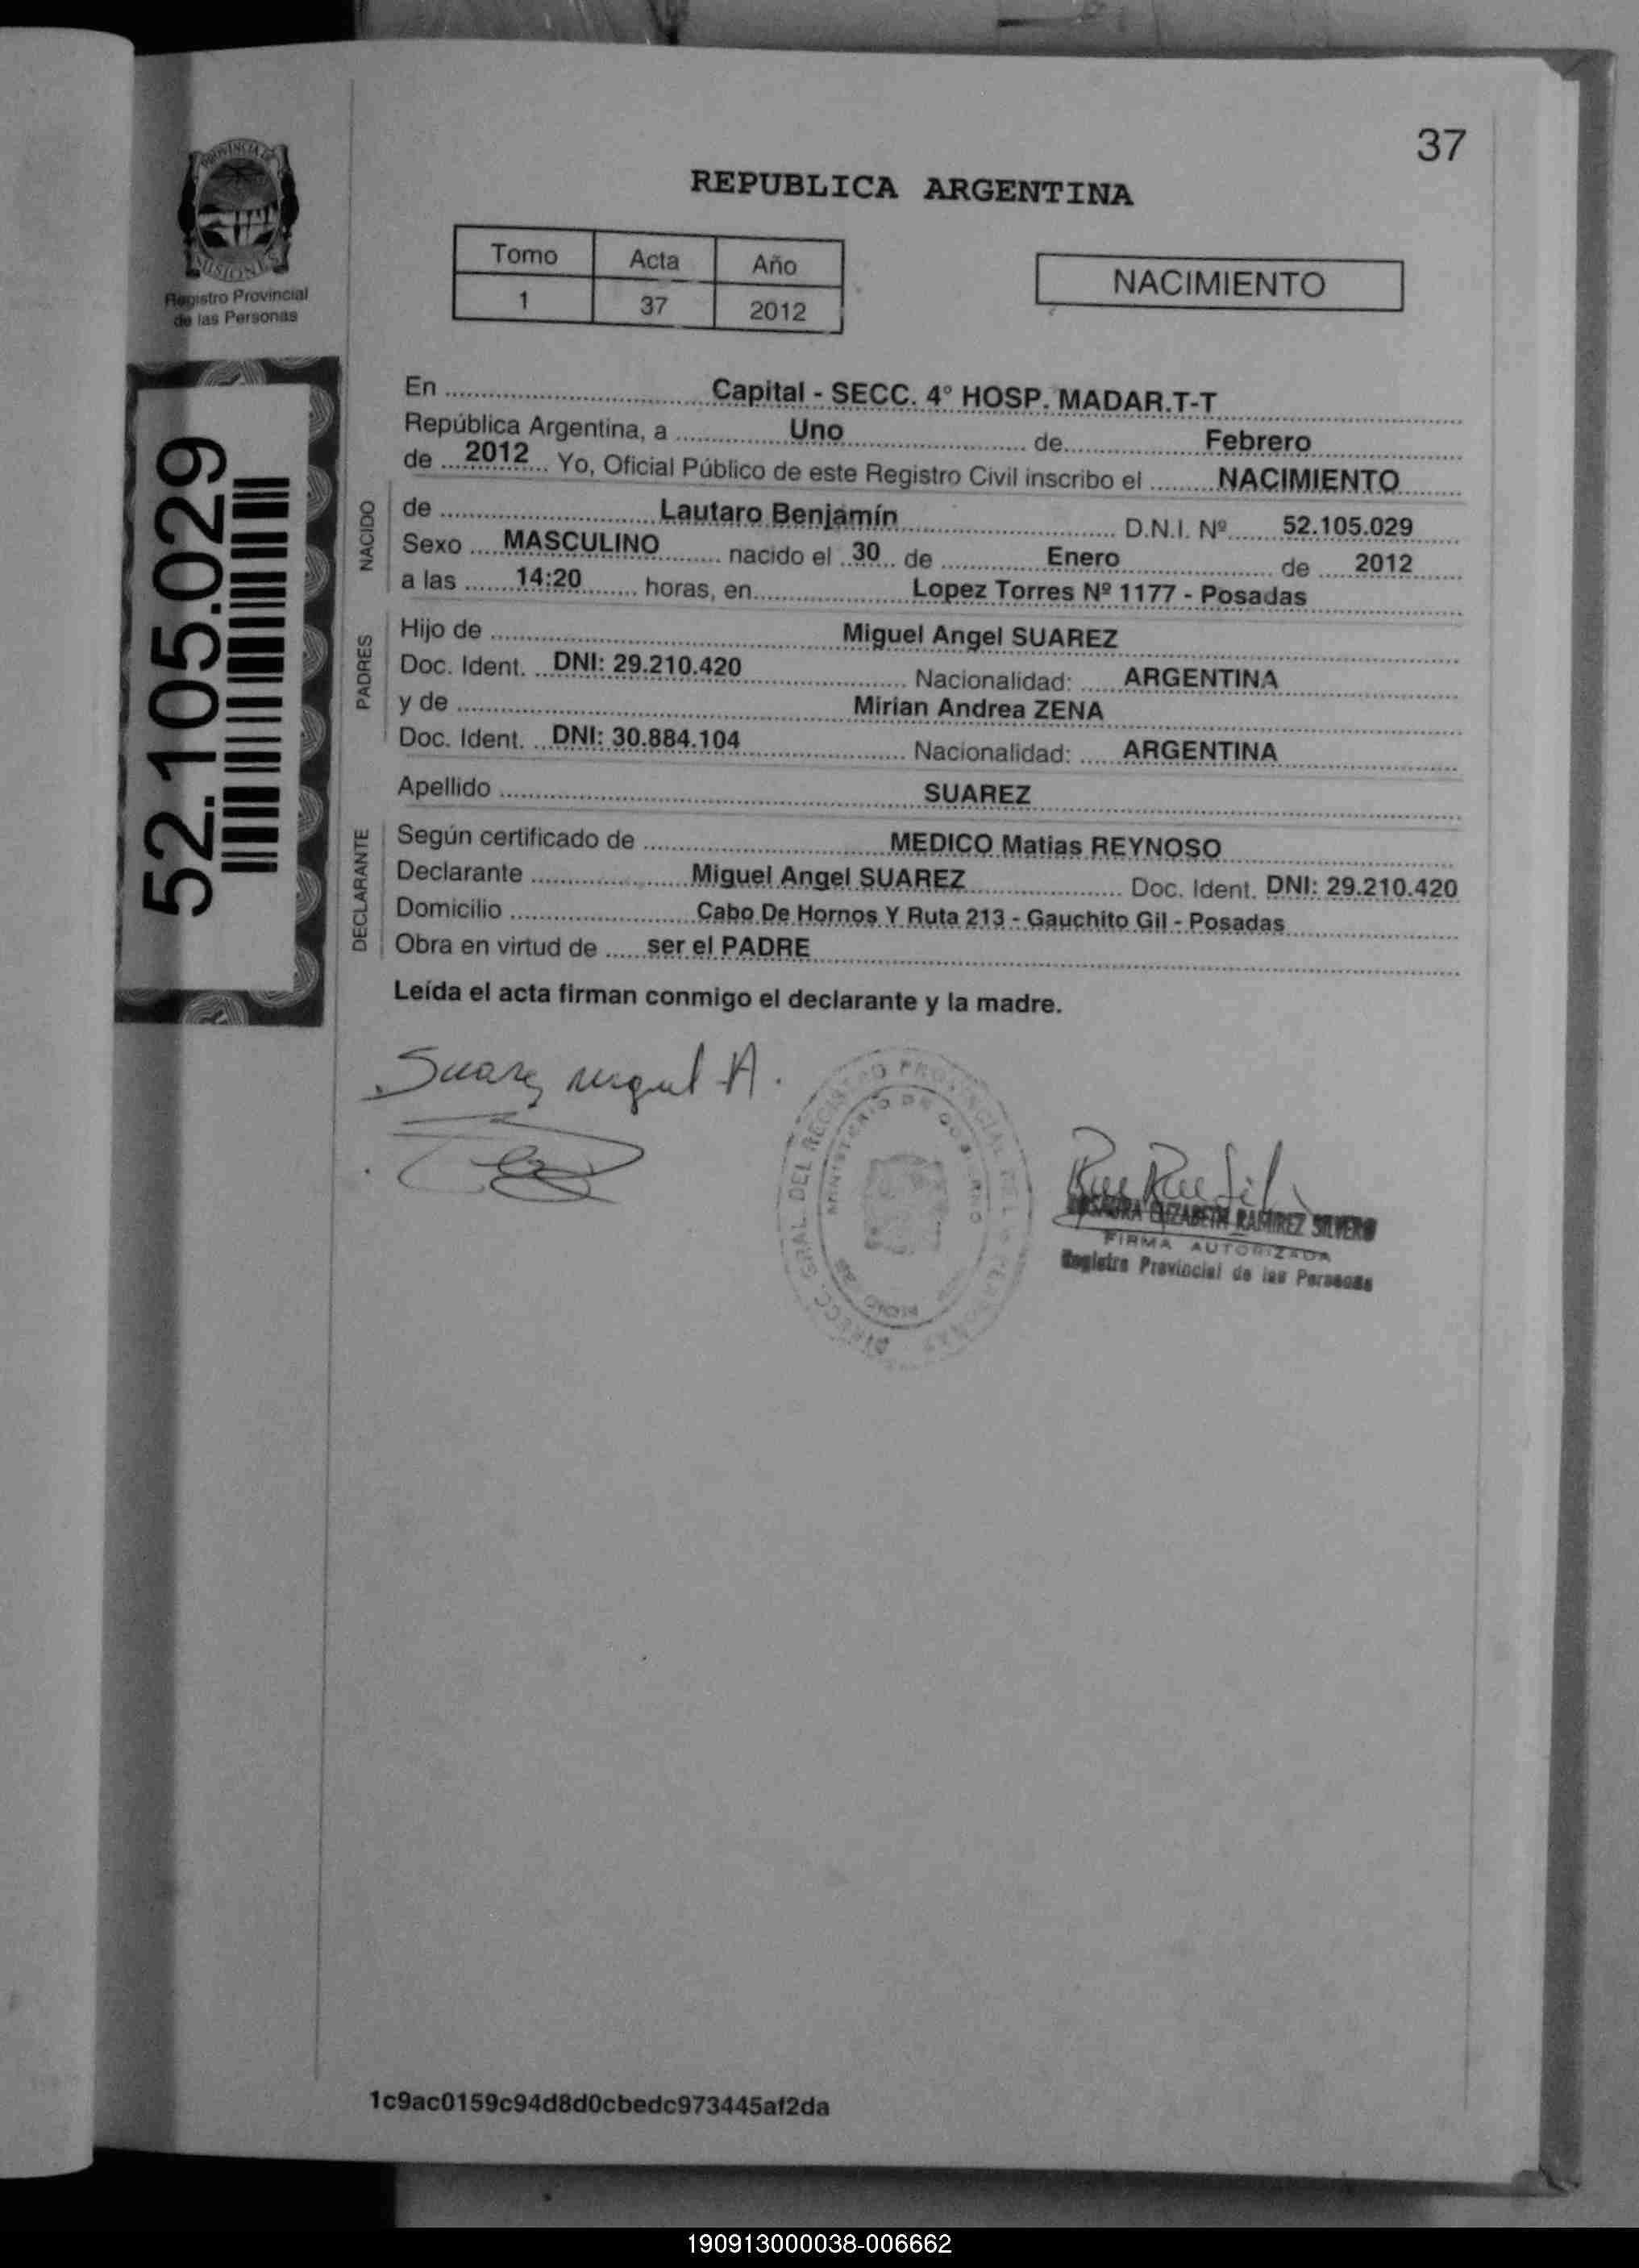 37
PROVINCIA DE
MISIONES
Registro Provincial
de las Personas
REPUBLICA ARGENTINA
Tomo Acta Año
1 37 2012
NACIMIENTO
52.105.029
En Capital - SECC. 4º HOSP. MADAR.T-T
República Argentina, a Uno de Febrero
de 2012 Yo, Oficial Público de este Registro Civil inscribo el NACIMIENTO
NACIDO
de Lautaro Benjamín D.N.I. Nº 52.105.029
Sexo MASCULINO nacido el 30 de Enero de 2012
a las 14:20 horas, en Lopez Torres Nº 1177 - Posadas
PADRES
Hijo de Miguel Angel SUAREZ
Doc. Ident. DNI: 29.210.420 Nacionalidad: ARGENTINA
y de Mirian Andrea ZENA
Doc. Ident. DNI: 30.884.104 Nacionalidad: ARGENTINA
Apellido SUAREZ
DECLARANTE
Según certificado de MEDICO Matias REYNOSO
Declarante Miguel Angel SUAREZ Doc. Ident. DNI: 29.210.420
Domicilio Cabo De Hornos Y Ruta 213 - Gauchito Gil - Posadas
Obra en virtud de ser el PADRE
Leída el acta firman conmigo el declarante y la madre.
Suarez Miguel A.
DIRECC. GRAL. DEL REGISTRO PROVINCIAL DE LAS PERSONAS
MINISTERIO DE GOBIERNO
ROSAURA ELIZABETH RAMIREZ SILVERO
FIRMA AUTORIZADA
Registro Provincial de las Personas
1c9ac0159c94d8d0cbedc973445af2da
190913000038-006662